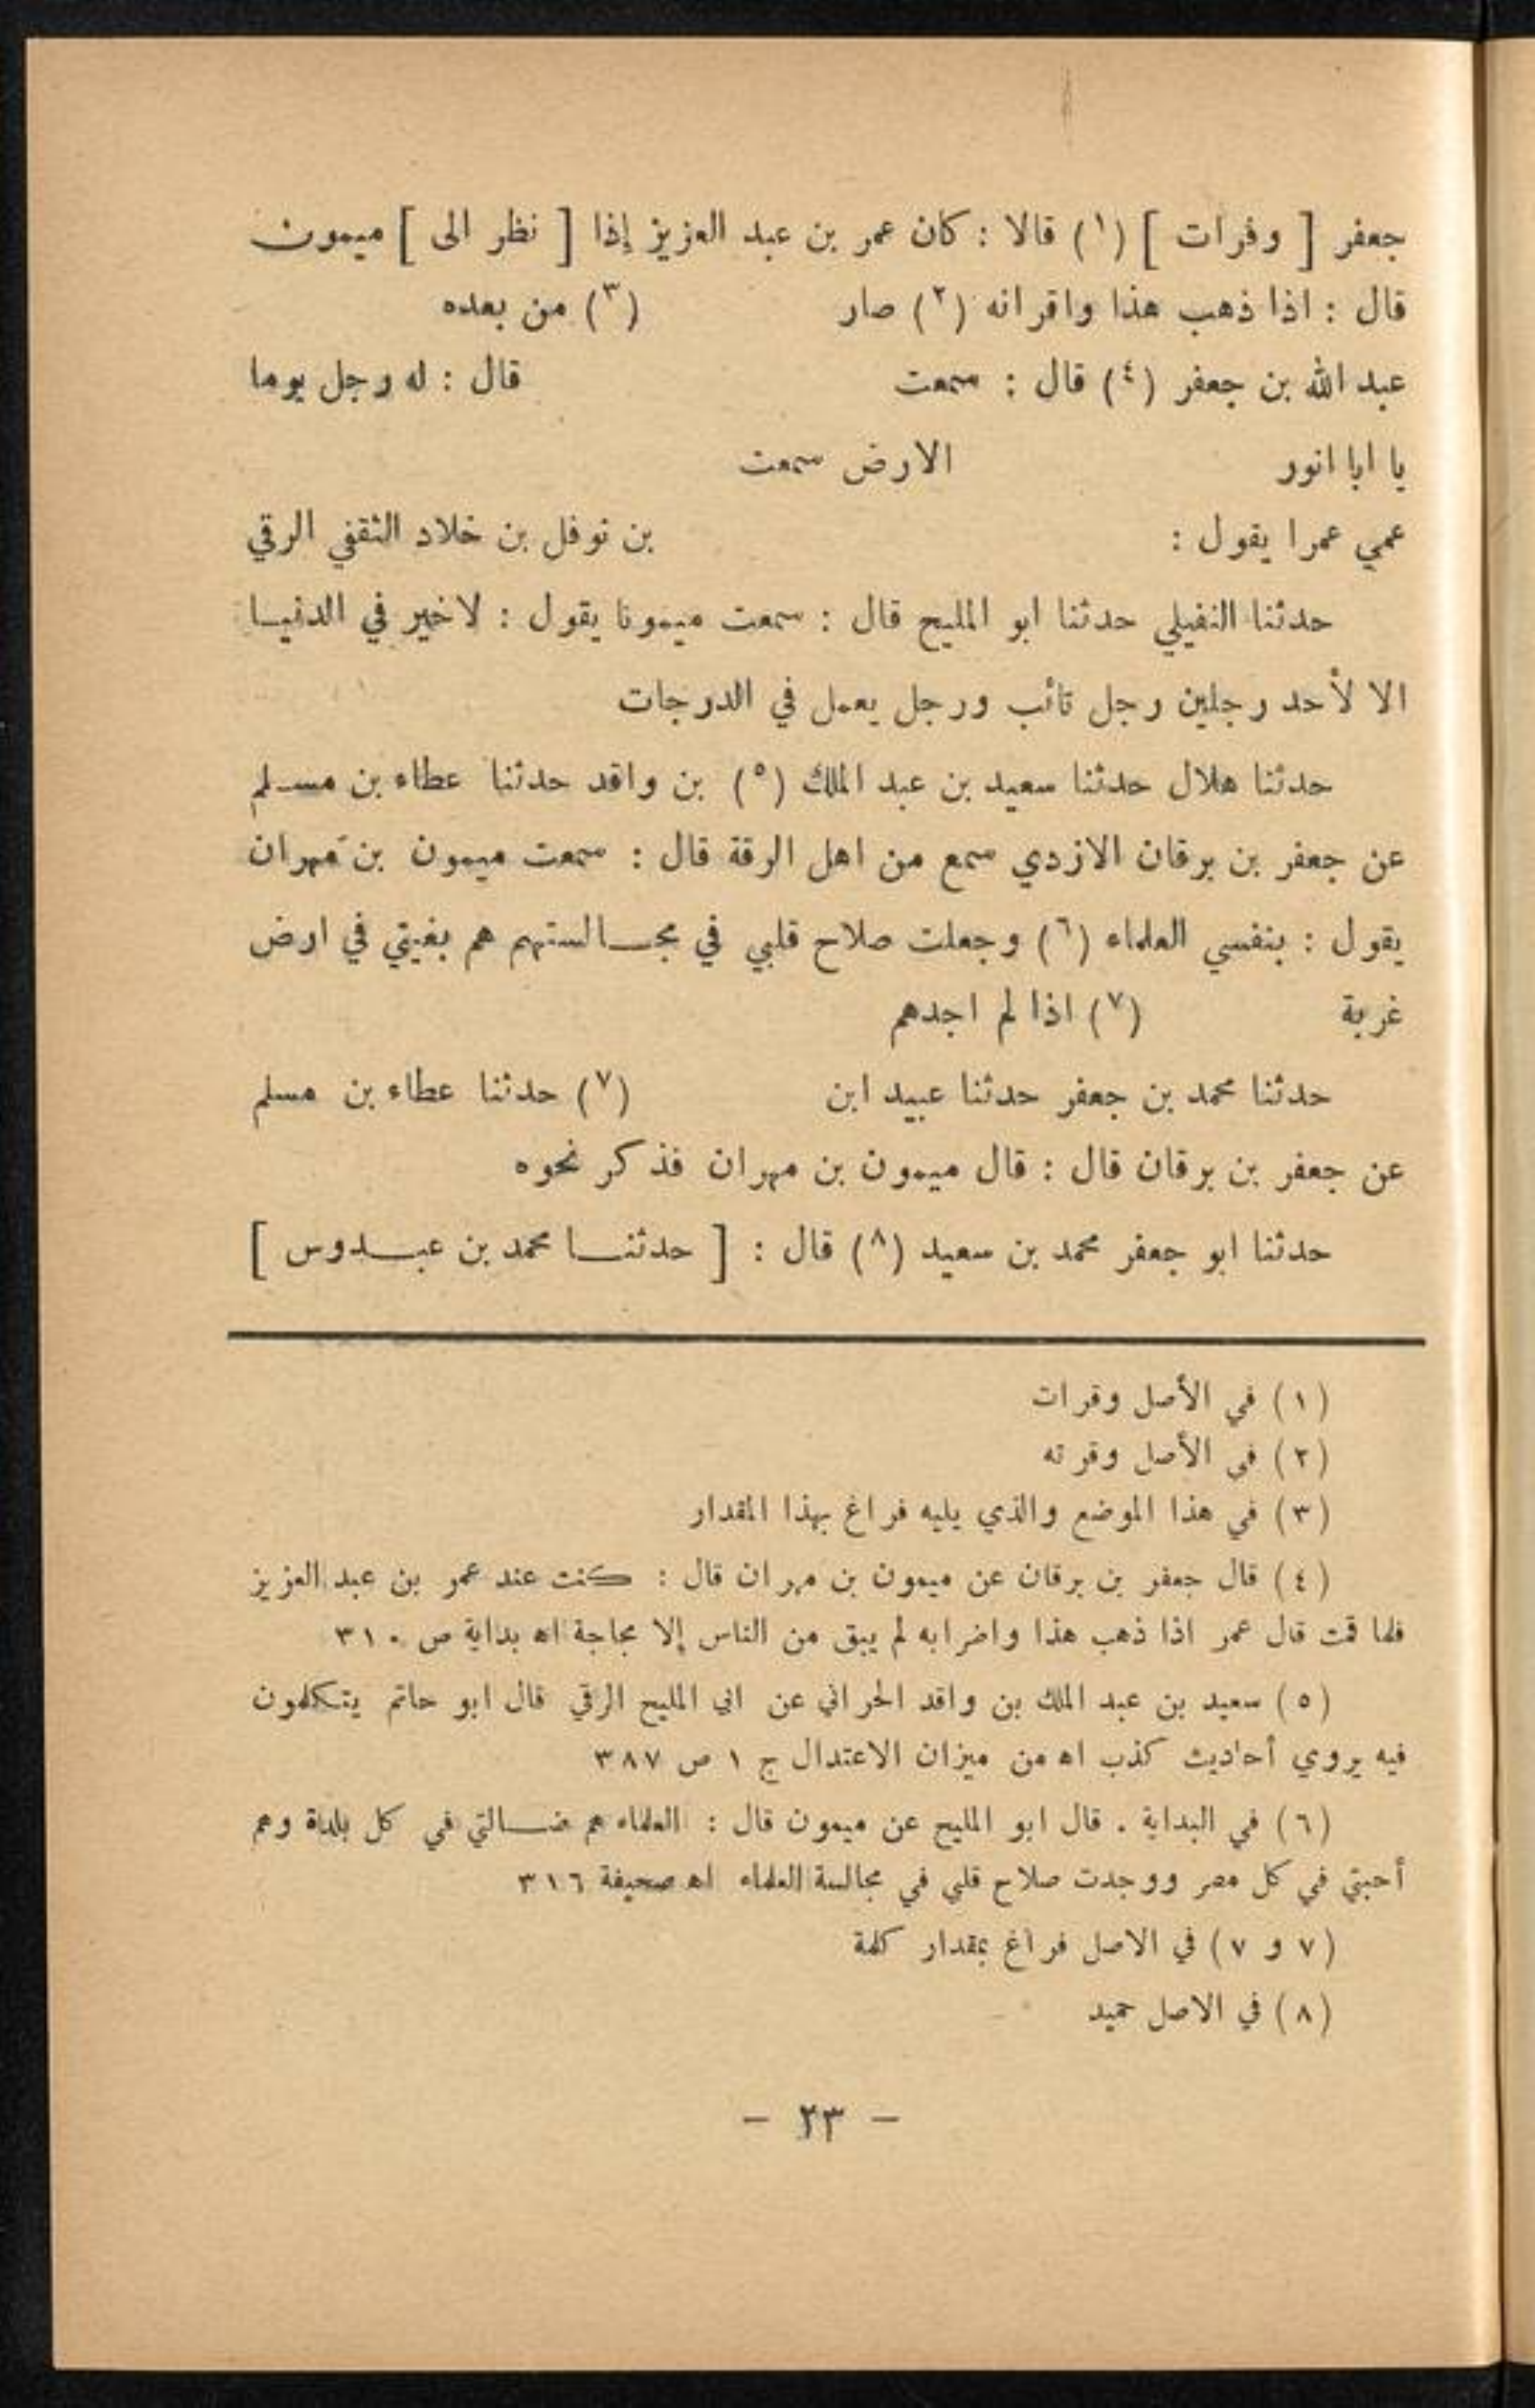 جعفر [ وفرات ] (١) قالا : كان عمر بن عبد العزيز إذا [ نظر الى ] ميمون
قال : اذا ذهب هذا واقرانه (٢) صار (٣) من بعده
عبد الله بن جعفر (٤) قال : سمعت قال : له رجل يوما
يا ابا انور الارض سمعت
عمي عمرا يقول : بن نوفل بن خلاد الثقفي الرقي
حدثنا النفيلي حدثنا ابو المليح قال : سمعت ميمونا يقول : لاخير في الدنيا
الا لأحد رجلين رجل تائب ورجل يعمل في الدرجات
حدثنا هلال حدثنا سعيد بن عبد الملك (٥) بن واقد حدثنا عطاء بن مسلم
عن جعفر بن برقان الازدي سمع من اهل الرقة قال : سمعت ميمون بن مهران
يقول : بنفسي العلماء (٦) وجعلت صلاح قلبي في مجالستهم هم بغيتي في ارض
غربة (٧) اذا لم اجدهم
حدثنا محمد بن جعفر حدثنا عبيد ابن (٧) حدثنا عطاء بن مسلم
عن جعفر بن برقان قال : قال ميمون بن مهران فذكر نحوه
حدثنا ابو جعفر محمد بن سعيد (٨) قال : [ حدثنا محمد بن عبدوس ]
(١) في الأصل وقرات
(٢) في الأصل وقرته
(٣) في هذا الموضع والذي يليه فراغ بهذا المقدار
(٤) قال جعفر بن برقان عن ميمون بن مهران قال : كنت عند عمر بن عبد العزيز
فلما قمت قال عمر اذا ذهب هذا واضرابه لم يبق من الناس إلا مجاجة اه بداية ص ٣١٠
(٥) سعيد بن عبد الملك بن واقد الحراني عن ابي المليح الرقي قال ابو حاتم يتكلمون
فيه يروي أحاديث كذب اه من ميزان الاعتدال ج ١ ص ٣٨٧
(٦) في البداية . قال ابو المليح عن ميمون قال : العلماء هم ضالتي في كل بلدة وهم
أحبتي في كل مصر ووجدت صلاح قلبي في مجالسة العلماء اه صحيفة ٣١٦
(٧ و ٧) في الاصل فراغ بمقدار كلمة
(٨) في الاصل حميد
- ٢٣ -